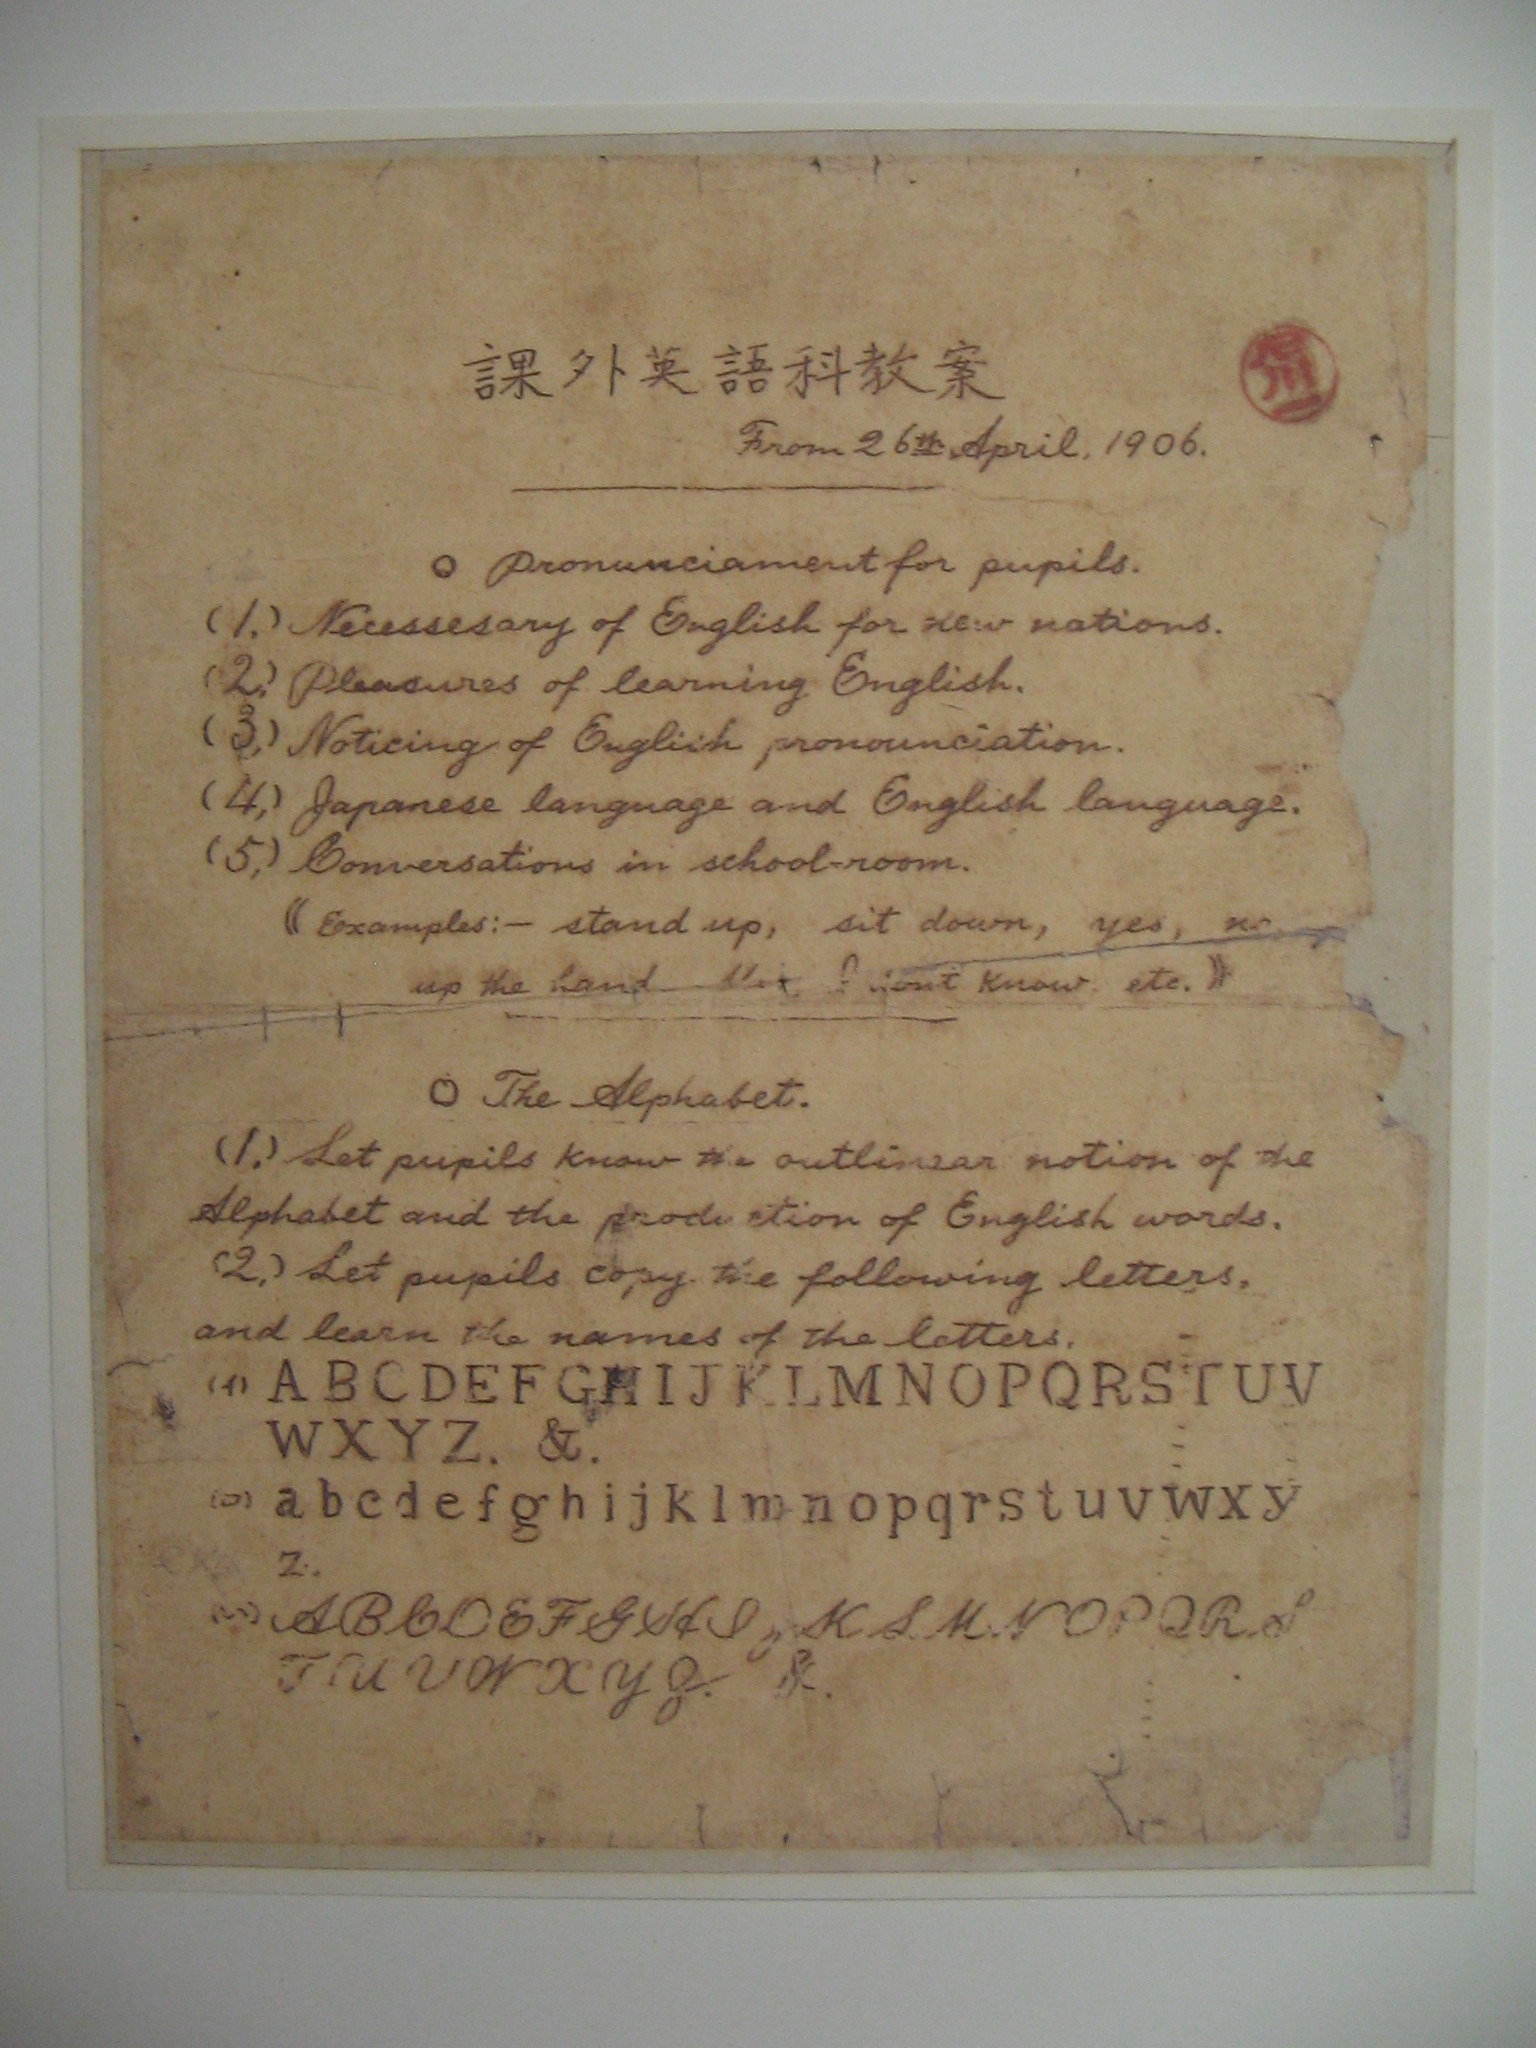 課外英語科教案
From 26th April, 1906.
○ Pronunciament for pupils.
(1.) Necessesary of English for new nations.
(2.) Pleasures of learning English.
(3.) Noticing of English pronounciation.
(4.) Japanese language and English language.
(5.) Conversations in school-room.
《Examples:— stand up, sit down, yes, no
up the hand I dont know. etc.》
○ The Alphabet.
(1.) Let pupils know the outlinear notion of the
Alphabet and the production of English words.
(2.) Let pupils copy the following letters,
and learn the names of the letters.
(イ) A B C D E F G H I J K L M N O P Q R S T U V
W X Y Z. &.
(ロ) a b c d e f g h i j k l m n o p q r s t u v w x y
z.
(ハ) A B C D E F G H I J K L M N O P Q R S
T U V W X Y Z. &.